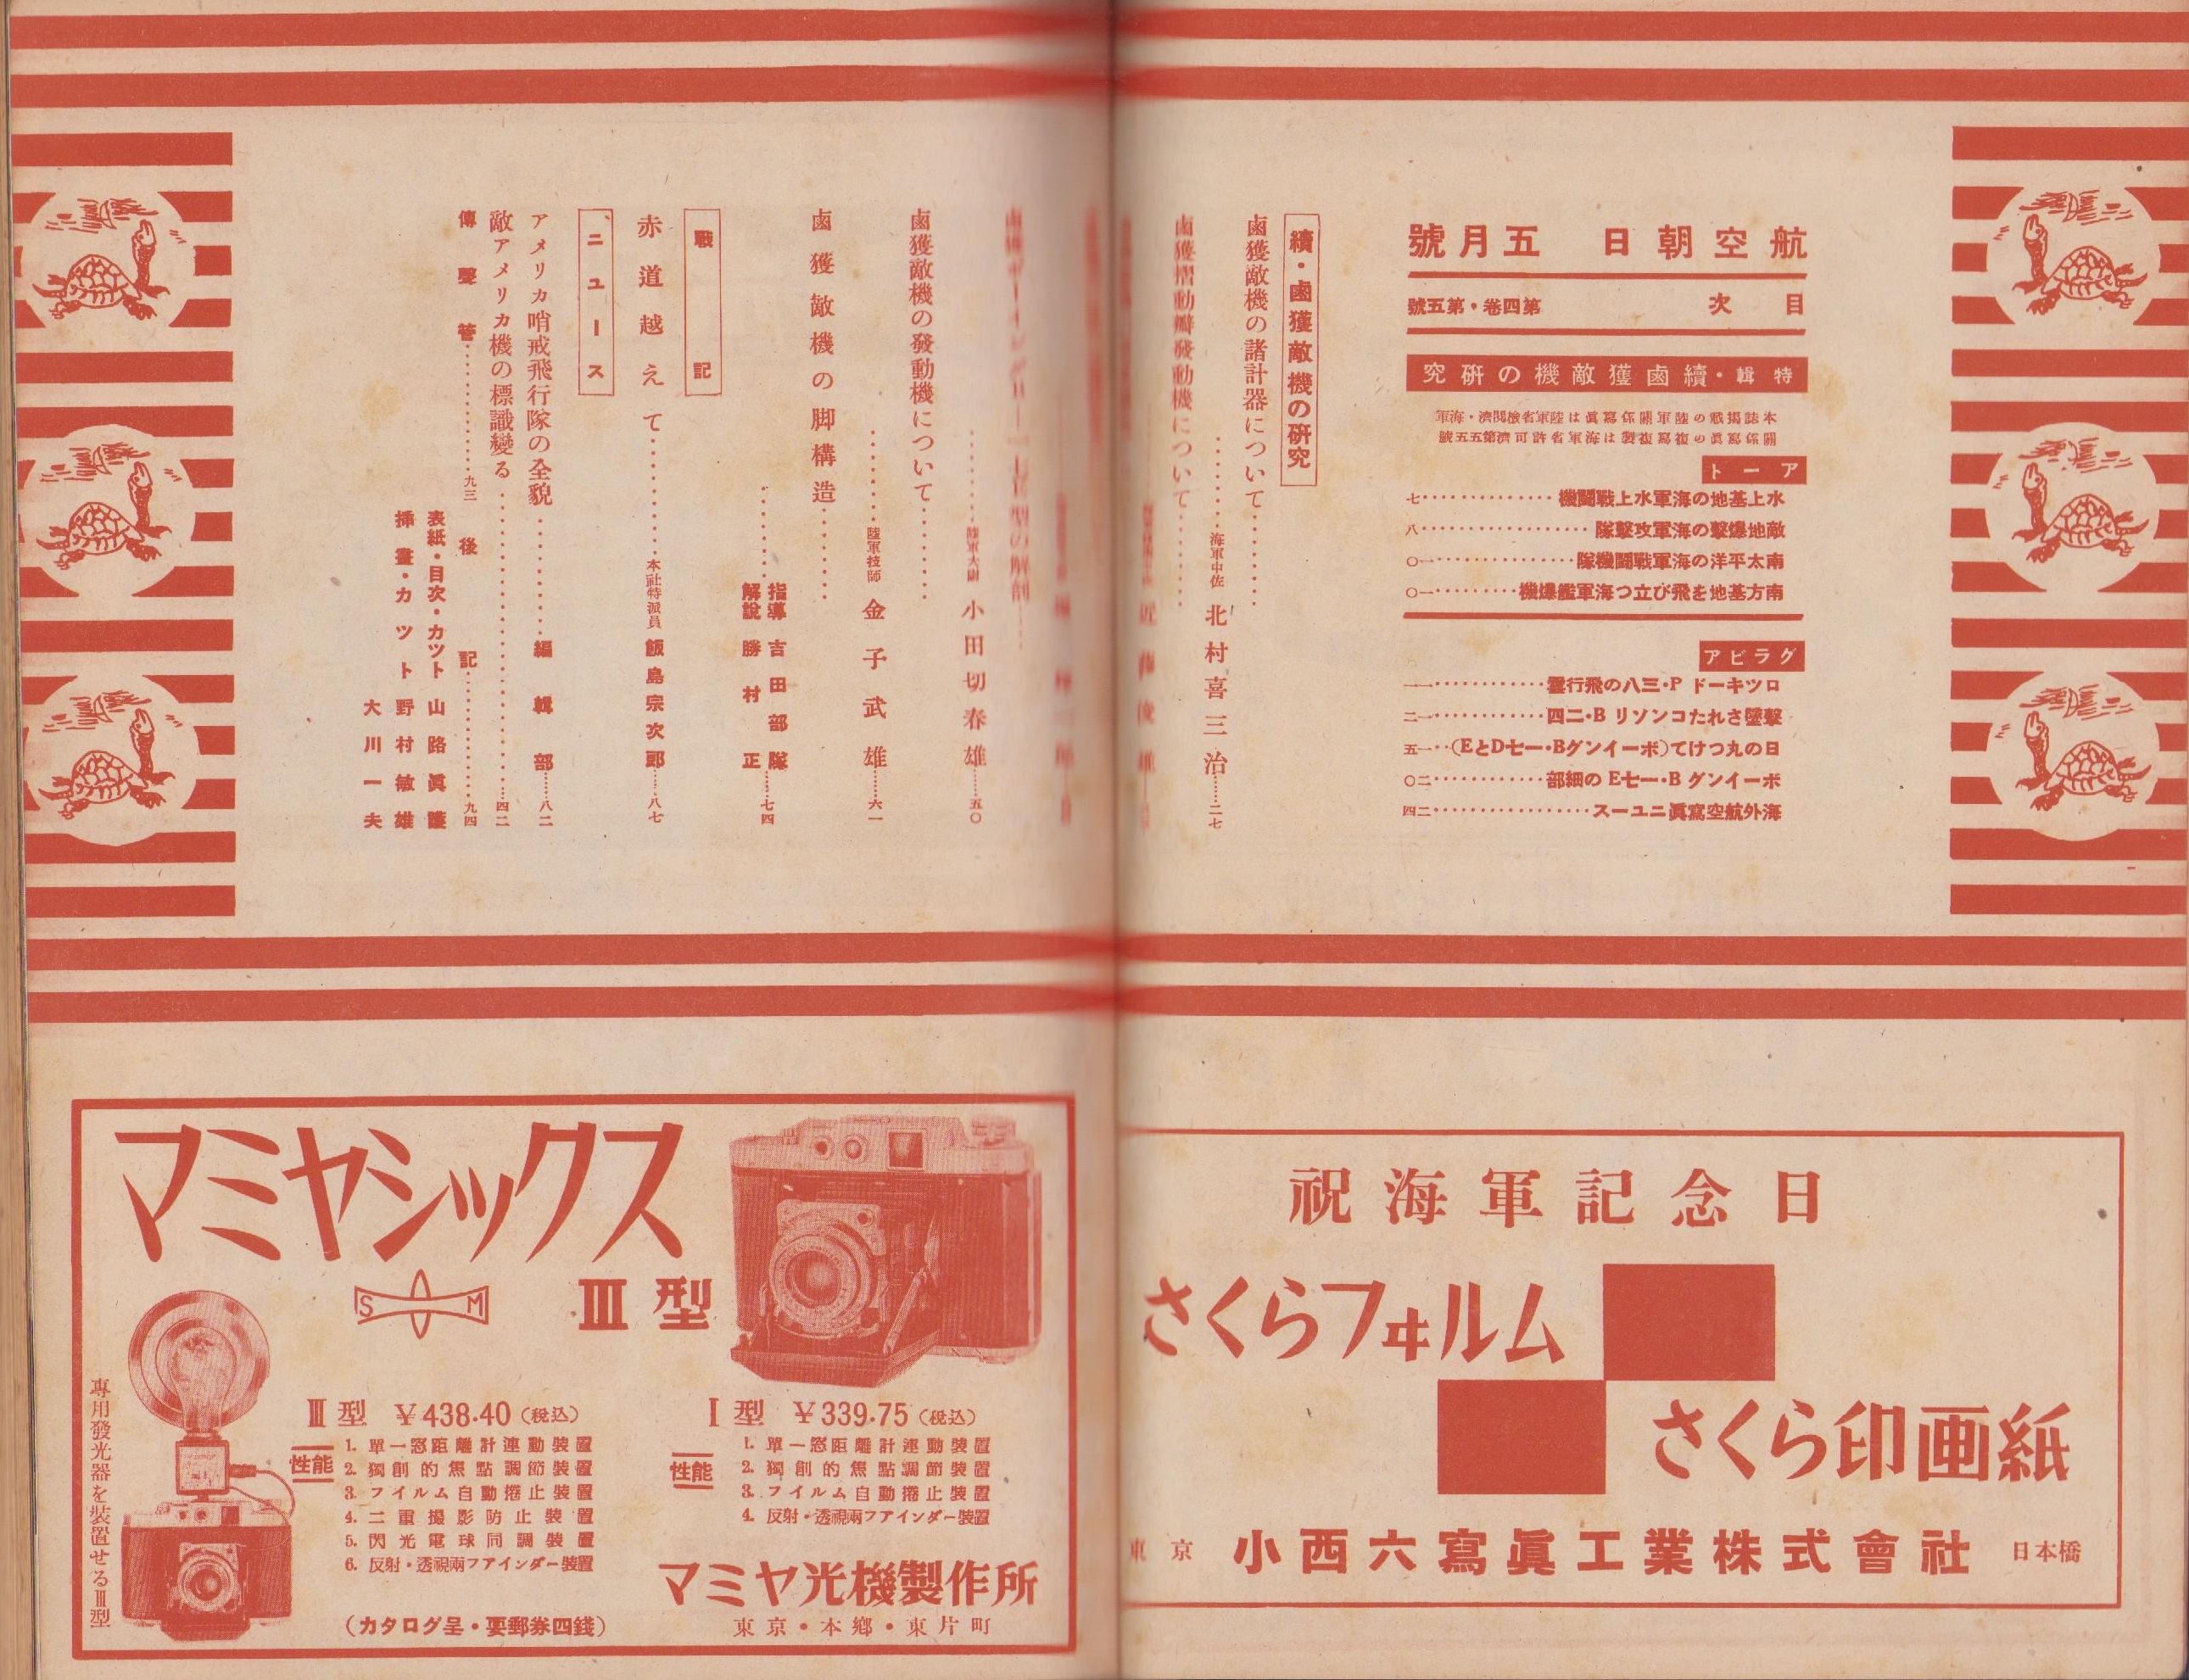 航空朝日 五月號
目次 第四卷・第五號
特輯・續鹵獲敵機の硏究
本誌揭載の陸軍關係寫眞は陸軍省檢閱濟・海軍
關係寫眞の複寫複製は海軍省許可濟第五五號
アート
水上基地の海軍水上戰鬪機……………七
敵地爆擊の海軍攻擊隊……………八
南太平洋の海軍戰鬪機隊……………一〇
南方基地を飛び立つ海軍艦爆機………一〇
グラビア
ロツキード P・三八の飛行雲…………一一
擊墜されたコンソリ B・二四…………一二
日の丸つけて(ボーイングB・一七DとE)‥一五
ボーイング B・一七E の細部…………二〇
海外航空寫眞ニユース……………二四
續・鹵獲敵機の硏究
鹵獲敵機の諸計器について………
海軍中佐 北村喜三治……二七
鹵獲摺動瓣發動機について………
鹵獲敵機の發動機について………
陸軍大尉 小田切春雄……五〇
鹵獲敵機の脚構造………
陸軍技師 金子武雄……六一
指導 吉田部隊
解說 勝村正……七四
戰記
赤道越えて…………本社特派員 飯島宗次郎……八七
ニュース
アメリカ哨戒飛行隊の全貌…………編輯部……八二
敵アメリカ機の標識變る…………四二
傳聲管…………九三
後記…………九四
表紙・目次・カツト 山路眞護
插畫・カツト 野村敏雄
大川一夫
祝海軍記念日
さくらフヰルム
さくら印画紙
東京 小西六寫眞工業株式會社 日本橋
マミヤシックス
S M
III 型
I 型 ¥339.75(税込)
性能
1. 單一窓距離計連動裝置
2. 獨創的焦點調節裝置
3. フイルム自動捲止裝置
4. 反射・透視兩フアインダー裝置
III 型 ¥438.40(税込)
性能
1. 單一窓距離計連動裝置
2. 獨創的焦點調節裝置
3. フイルム自動捲止裝置
4. 二重撮影防止裝置
5. 閃光電球同調裝置
6. 反射・透視兩フアインダー裝置
專用發光器を裝置せるIII型
(カタログ呈・要郵券四錢)
マミヤ光機製作所
東京・本鄕・東片町